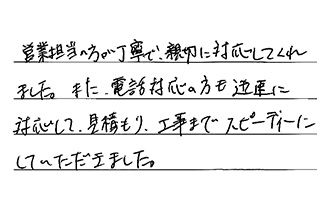 営業担当の方が丁寧で、親切に対応してくれ
ました。また、電話対応の方も迅速に
対応して、見積もり、工事までスピーディーに
していただきました。